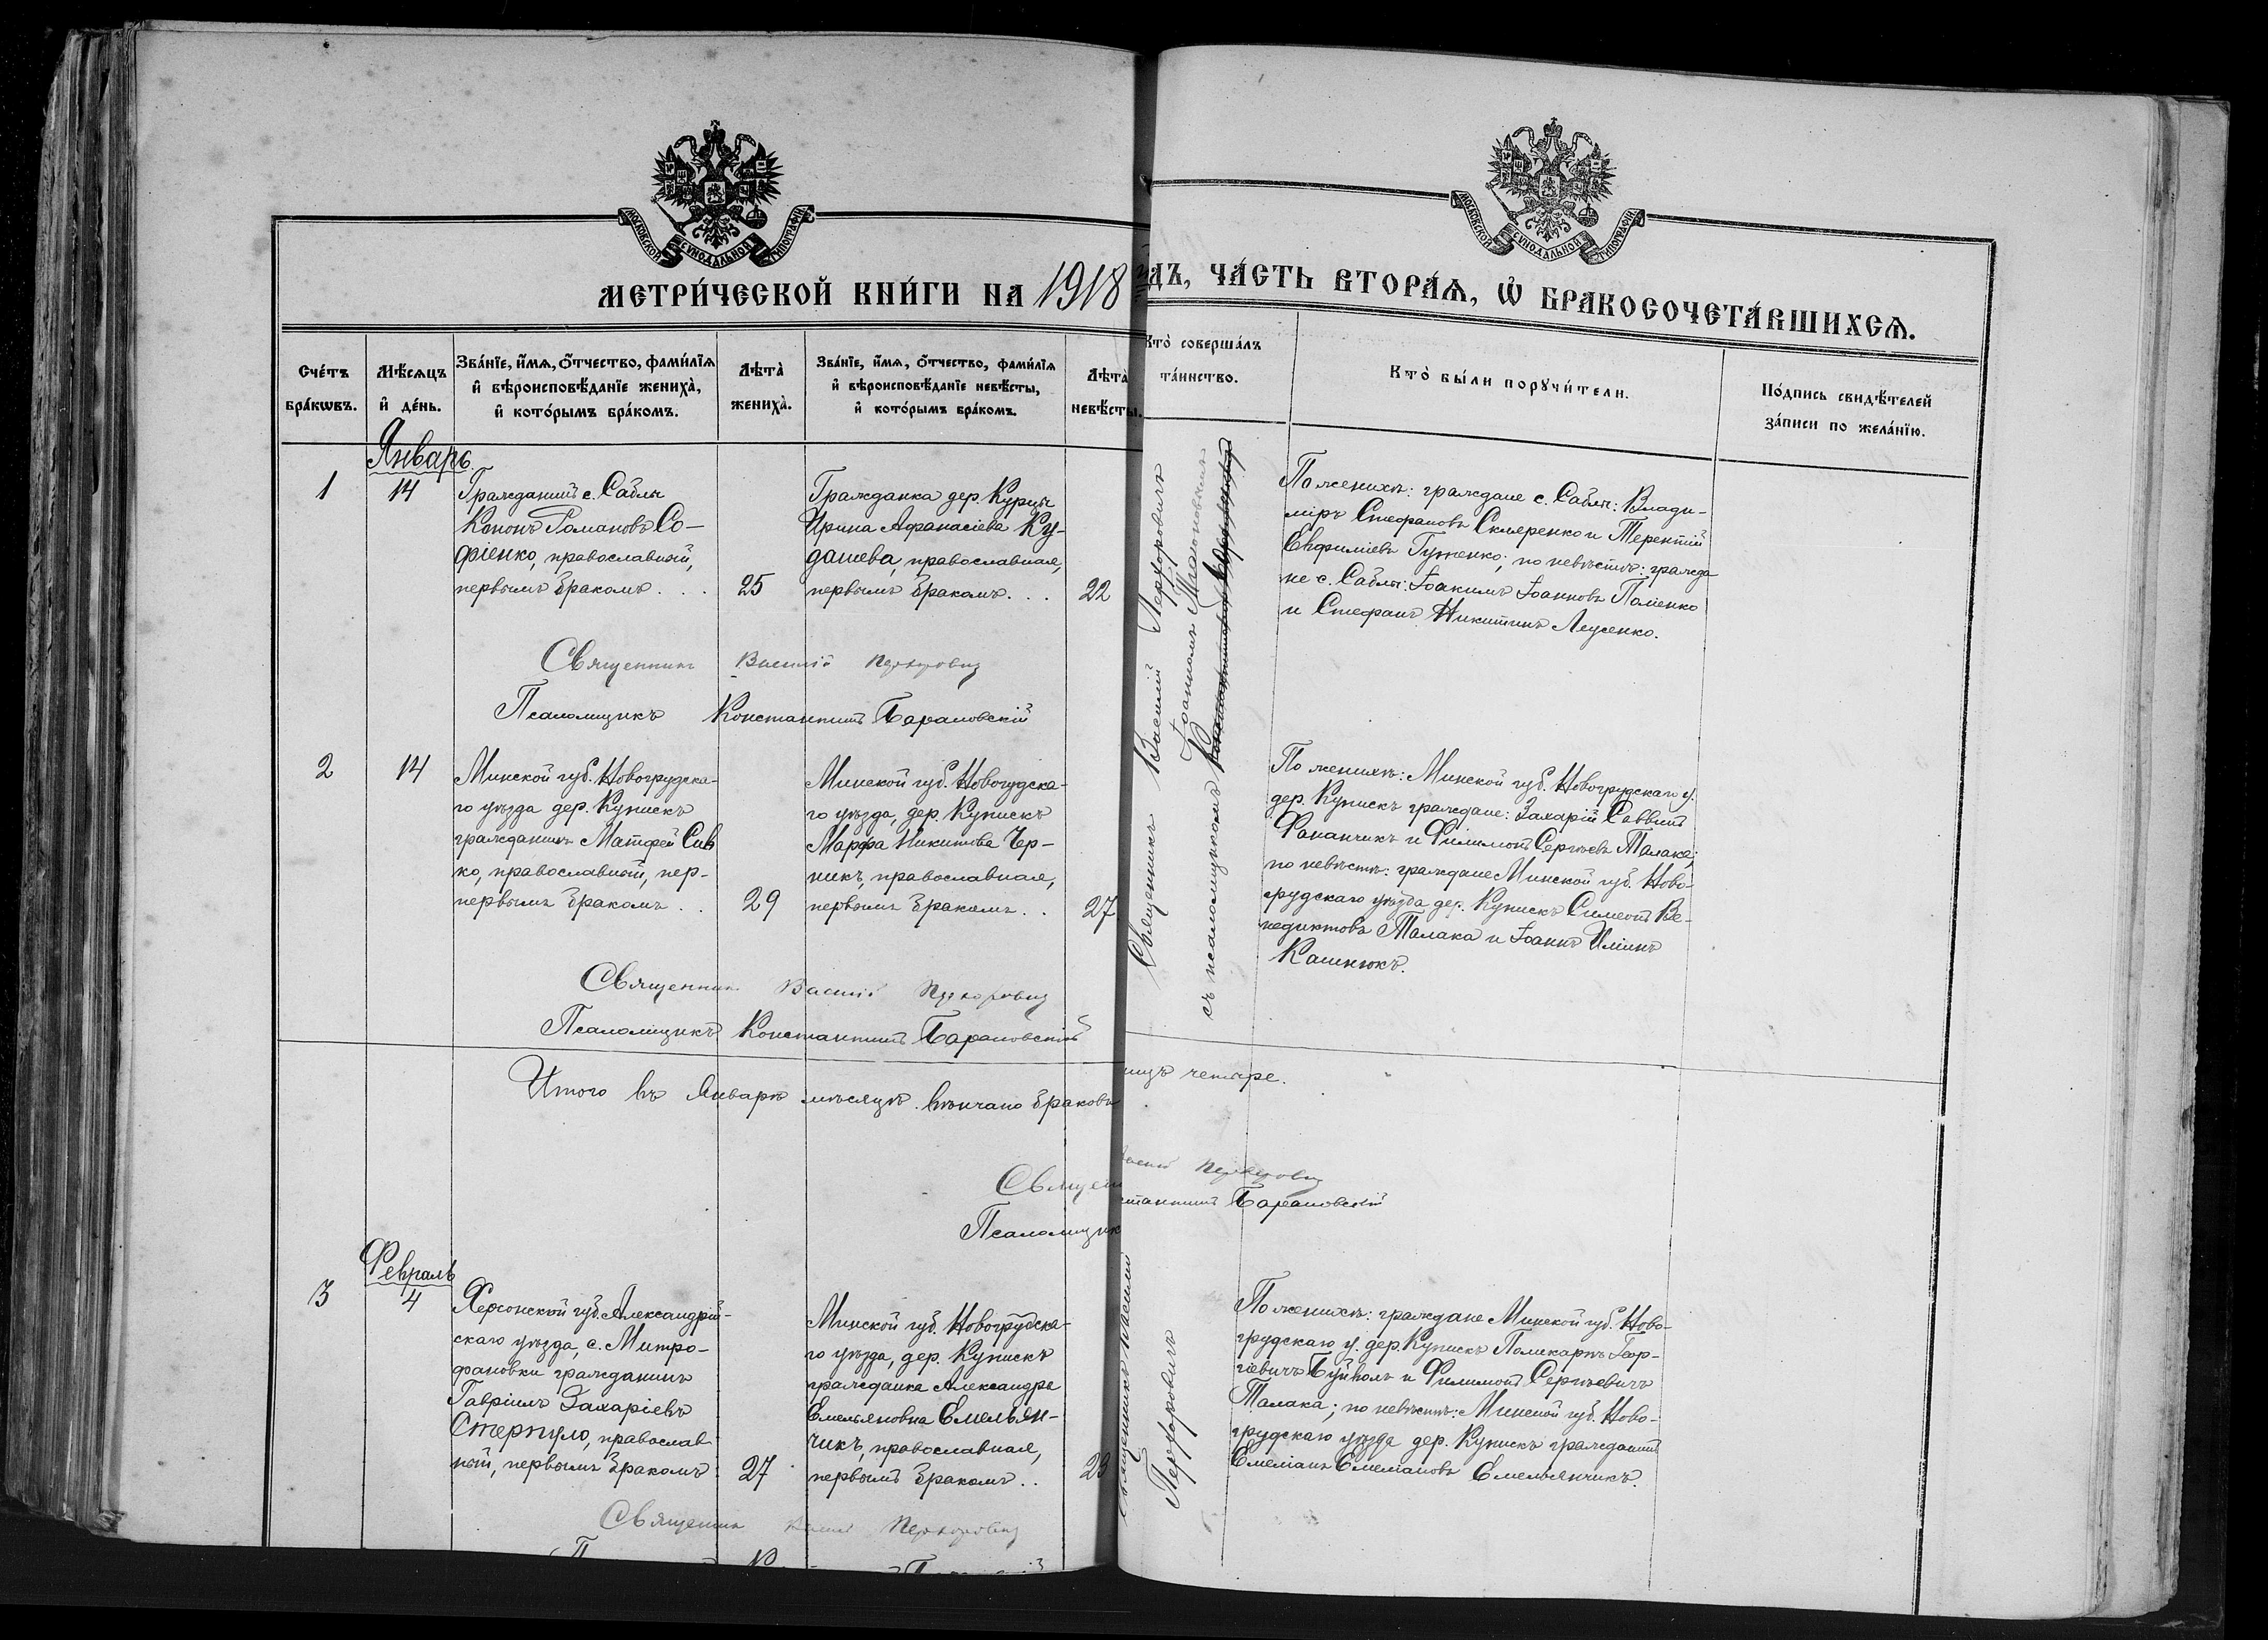 МОСКОВСКОЙ СѴНОДАЛЬНОЙ ТИПОГРАФІИ.
МОСКОВСКОЙ СѴНОДАЛЬНОЙ ТИПОГРАФІИ.
МЕТРИ́ЧЕСКОЙ КНИ́ГИ НА 1918 ДЪ, ЧА́СТЬ ВТОРА́Ѧ, Ѡ҆ БРАКОСОЧЕТА́ВШИХСѦ.
Сче́тъ
бра́кѡвъ.
Мѣ́сѧцъ
и҆ де́нь.
Зва́нїе, и҆́мѧ, ѻ҆́тчество, фами́лїѧ
и҆ вѣроисповѣ́данїе жениха̀,
и҆ кото́рымъ бра́комъ.
Лѣта̀
жениха̀.
Зва́нїе, и҆́мѧ, ѻ҆́тчество, фами́лїѧ
и҆ вѣроисповѣ́данїе невѣ́сты,
и҆ кото́рымъ бра́комъ.
Лѣта̀
невѣ́сты.
Кто̀ соверша́лъ
та́инство.
Кто̀ бы́ли порꙋчи́тели.
По́дпись свидѣ́телей
за́писи по жела́нїю.
Январь
1
14
Гражданинъ с. Саблы
Кононъ Романовъ Со-
фіенко, православный,
первымъ бракомъ . . .
25
Гражданка дер. Курцы
Ирина Афанасіева Ку-
дашева, православная,
первымъ бракомъ. . .
22
Священникъ Василій Перхоровичъ
съ псаломщикомъ
По женихѣ: граждане с. Саблы: Влади-
міръ Стефановъ Скляренко и Терентій
Евфиміевъ Гуженко; по невѣстѣ: гражда
не с. Саблы: Іоакимъ Іоанновъ
и Стефанъ Никитинъ Леусенко.
Священникъ Василій Перхоровичъ
Псаломщикъ Константинъ Барановскій
2
14
Минской губ. Новогрудска-
го уѣзда дер. Купискъ
гражданинъ Матфей Сив
ко, православный, пер-
первымъ бракомъ . .
29
Минской губ. Новогудска-
го уѣзда, дер. Купискъ
Марфа Никитова Чер-
никъ, православная,
первымъ бракомъ . .
27
По женихѣ: Минской губ. Новогрудскаго у.
дер. Купискъ граждане: Захарій Саввинъ
и Филимонъ Сергѣевъ Талака;
по невѣстѣ: граждане Минской губ. Ново-
грудскаго уѣзда дер. Купискъ Симеонъ Ве-
недиктовъ Талака и Іоаннъ Иліинъ
Кашнюкъ.
Священникъ Василій Перхоровичъ
Псаломщикъ Константинъ Барановскій
Итого въ Январѣ мѣсяцѣ вѣнчано браковъ
лицъ четыре.
Священ
Василій Перхоровичъ
Псаломщик
стантинъ Барановскій
Февраль
3
4
Херсонской губ. Александрій-
скаго уѣзда, с. Митро-
фановки гражданинъ
Гавріилъ Захаріевъ
Стерпуло, православ-
ный, первымъ бракомъ
27
Минской губ. Новогрудска-
го уѣзда, дер. Купискъ
гражданка Александра
Емельяновна Емельян-
чикъ, православная,
первымъ бракомъ . .
23
Священникъ Василій
Перхоровичъ
По женихѣ: граждане Минской губ. Ново-
грудскаго у. дер. Купискъ Поликарпъ Геор-
гіевичъ Буйволъ и Филимонъ Сергѣевичъ
Талака; по невѣстѣ: Минской губ. Ново-
грудскаго уѣзда дер. Купискъ гражданинъ
Емеліанъ Емеліановъ Емельянчикъ.
Священник Василій Перхоровичъ